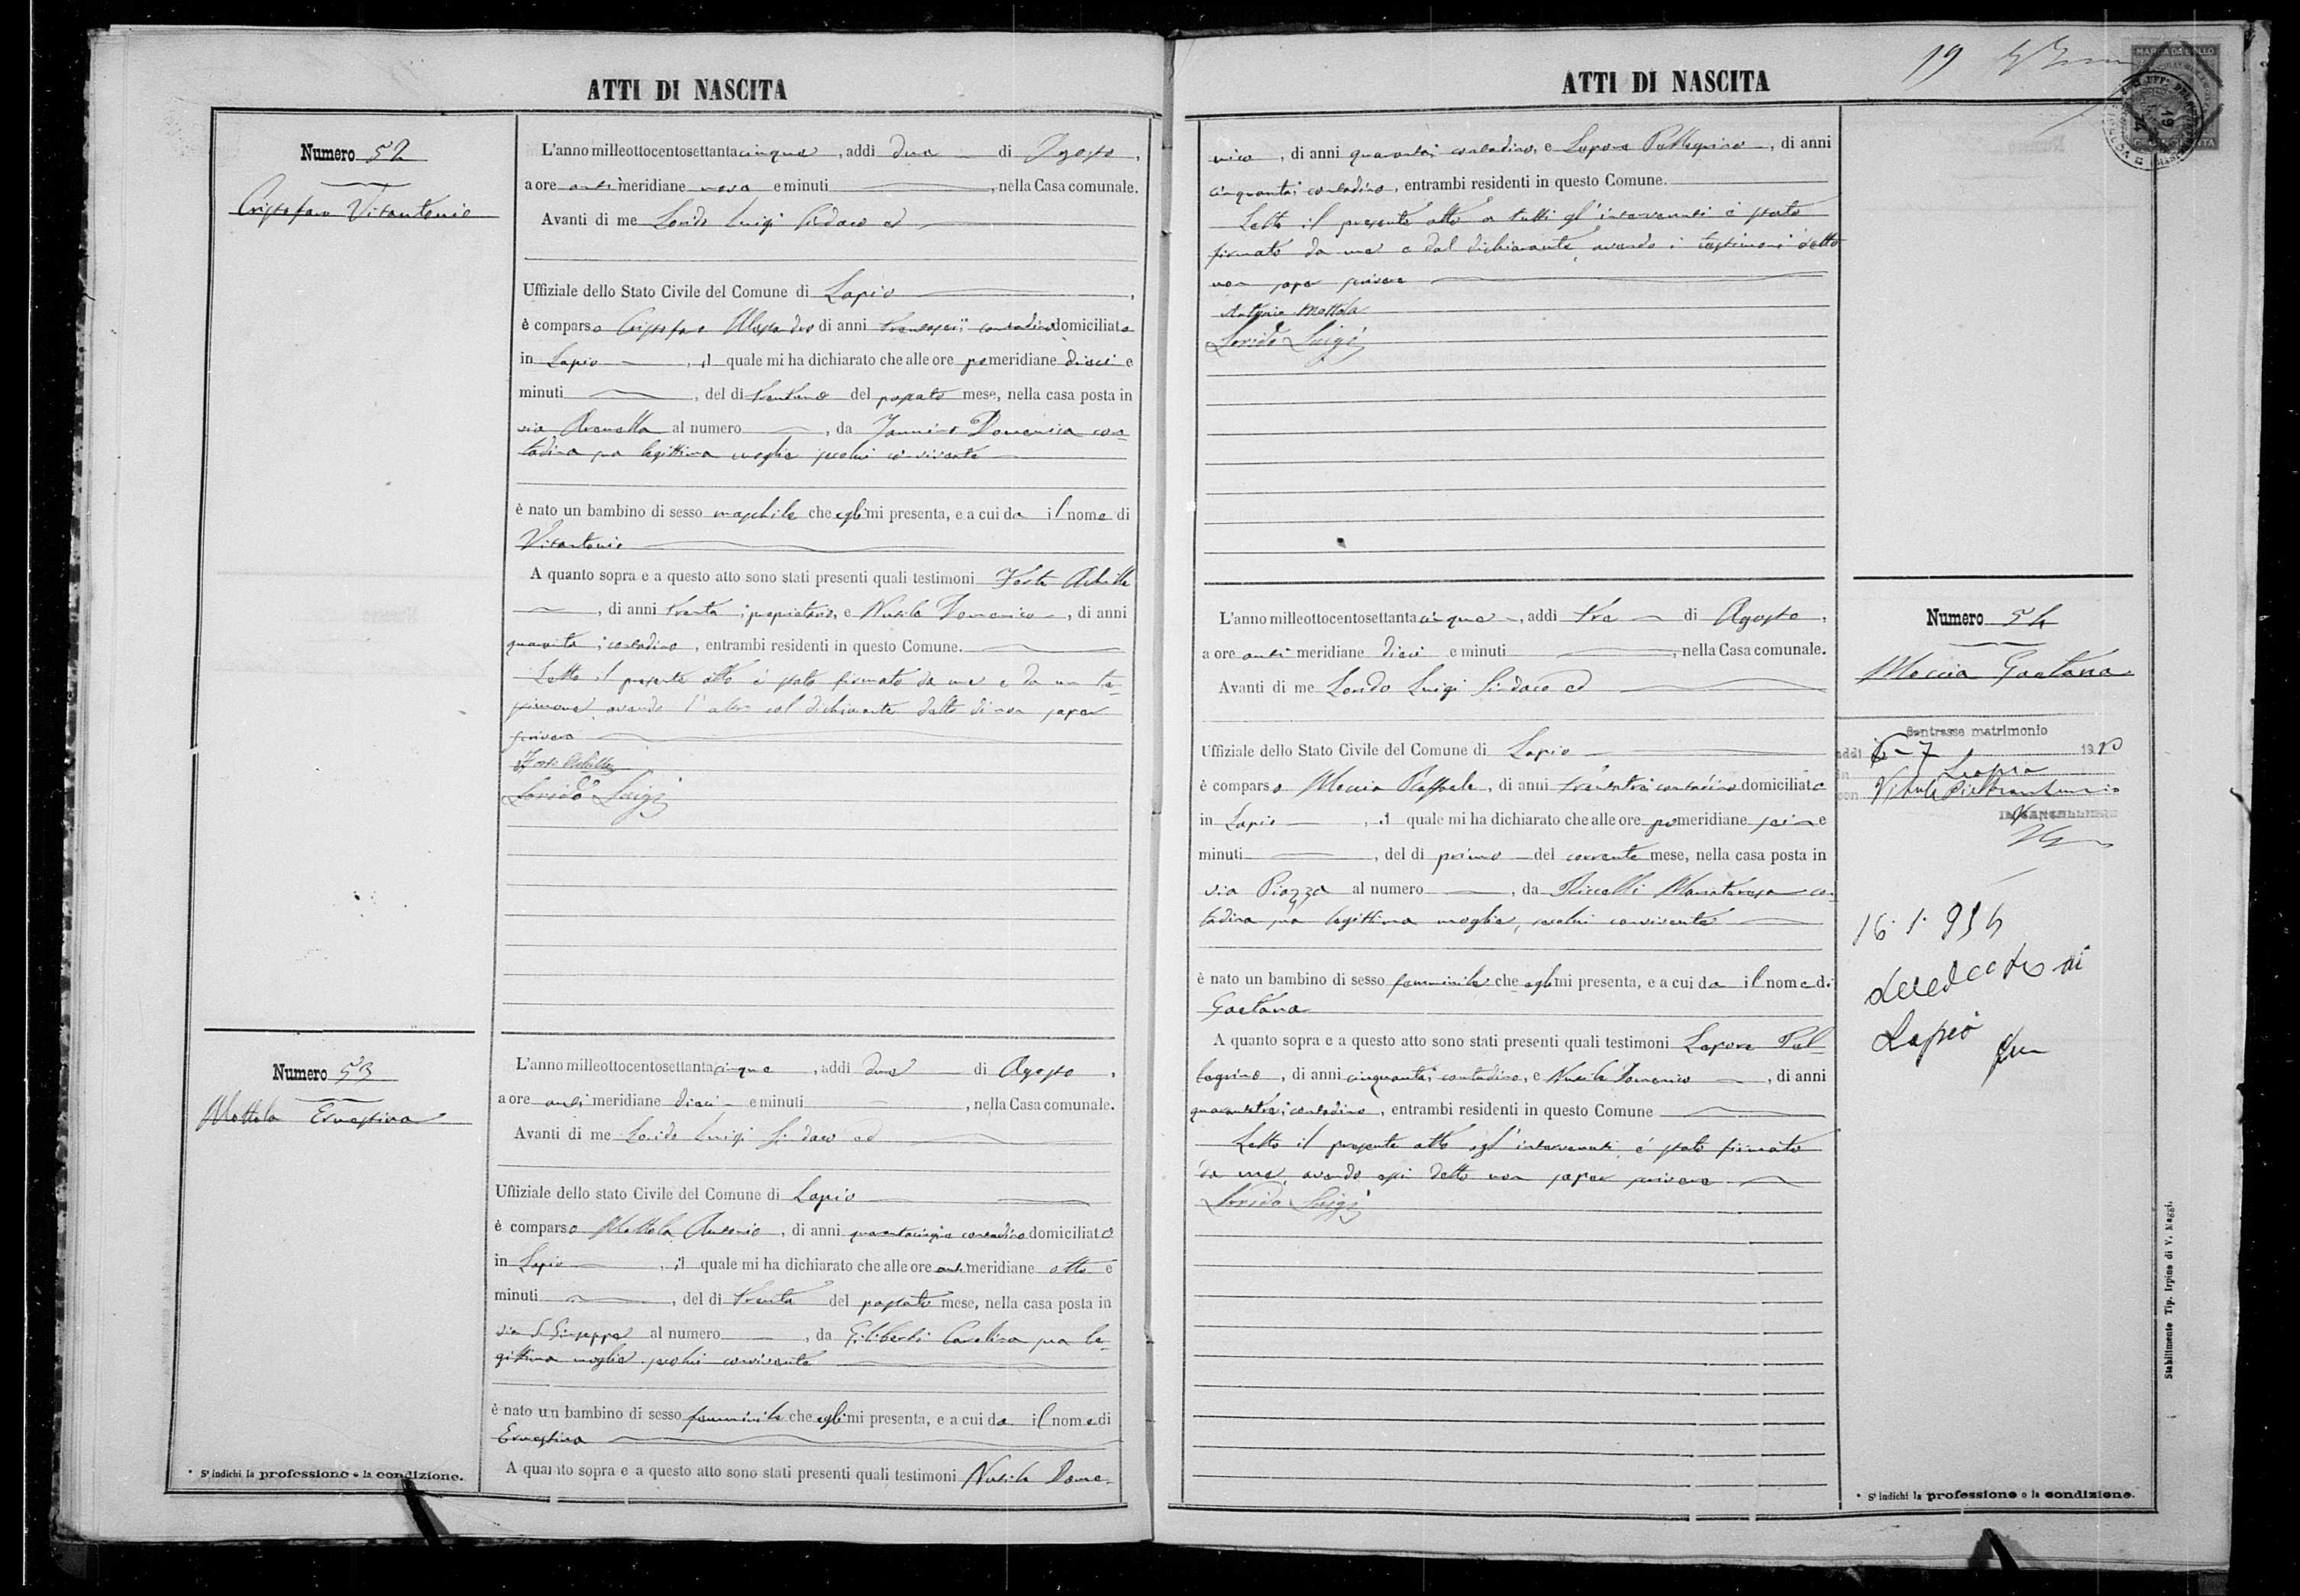 ATTI DI NASCITA
Numero 52
Crisafaro Vitantonio
L'anno milleottocentosettantacinque, addi due di Agosto,
a ore antimeridiane nove e minuti , nella Casa comunale.
Avanti di me Lorido Luigi Sindaco ed
Uffiziale dello Stato Civile del Comune di Lapio,
è comparso di anni trentasei contadino domiciliato
in Lapio, il quale mi ha dichiarato che alle ore pomeridiane dieci e
minuti , del dì trentuno del passato mese, nella casa posta in
via al numero , da Domenica con-
tadina sua legittima moglie secolui convivente
è nato un bambino di sesso maschile che egli mi presenta, e a cui da il nome di
Vitantonio
A quanto sopra e a questo atto sono stati presenti quali testimoni Forte Achille
, di anni trenta, proprietario, e Domenico, di anni
quaranta, contadino, entrambi residenti in questo Comune.
Letto il presente atto è stato firmato da me e da un te-
stimone avendo l'altro col dichiarante detto di non saper
scrivere
Forte Achille
Lorido Luigi
Numero 53
Mottola Ernestina
L'anno milleottocentosettantacinque, addi due di Agosto,
a ore antimeridiane dieci e minuti , nella Casa comunale.
Avanti di me Lorido Luigi Sindaco ed
Uffiziale dello stato Civile del Comune di Lapio
è comparso Mottola Antonio, di anni quarantacinque contadino domiciliato
in Lapio, il quale mi ha dichiarato che alle ore antimeridiane otto e
minuti , del dì trenta del passato mese, nella casa posta in
via S. Giuseppe al numero , da Giliberti Carolina sua le-
gittima moglie secolui convivente
è nato un bambino di sesso femminile che egli mi presenta, e a cui da il nome di
Ernestina
A quanto sopra e a questo atto sono stati presenti quali testimoni Dome-
* S'indichi la professione o la condizione.
ATTI DI NASCITA
19
MARCA DA BOLLO
nico, di anni quaranta, contadino, e Lepore Pellegrino, di anni
cinquanta, contadino, entrambi residenti in questo Comune.
Letto il presente atto a tutti gl'intervenuti è stato
firmato da me e dal dichiarante, avendo i testimoni detto
non saper scrivere
Antonio Mottola
Lorido Luigi
Numero 54
Moccia Gaetana
Contrasse matrimonio
addì 6-7 19
in Lapio
con
IL CANCELLIERE
16.1.954
deceduta in
Lapio
L'anno milleottocentosettantacinque, addi tre di Agosto,
a ore antimeridiane dieci e minuti , nella Casa comunale.
Avanti di me Lorido Luigi Sindaco ed
Uffiziale dello Stato Civile del Comune di Lapio
è comparso Moccia Raffaele, di anni trentatre contadino domiciliato
in Lapio, il quale mi ha dichiarato che alle ore pomeridiane sei e
minuti , del dì primo del corrente mese, nella casa posta in
via Piazza al numero , da Mariateresa con-
tadina sua legittima moglie, secolui convivente
è nato un bambino di sesso femminile che egli mi presenta, e a cui da il nome di
Gaetana
A quanto sopra e a questo atto sono stati presenti quali testimoni Lepore Pel-
legrino, di anni cinquanta, contadino, e Domenico, di anni
quarantatre, contadino, entrambi residenti in questo Comune
Letto il presente atto agl'intervenuti è stato firmato
da me, avendo essi detto non saper scrivere
Lorido Luigi
* S'indichi la professione o la condizione.
Stabilimento Tip. Irpino di V. Maggi.